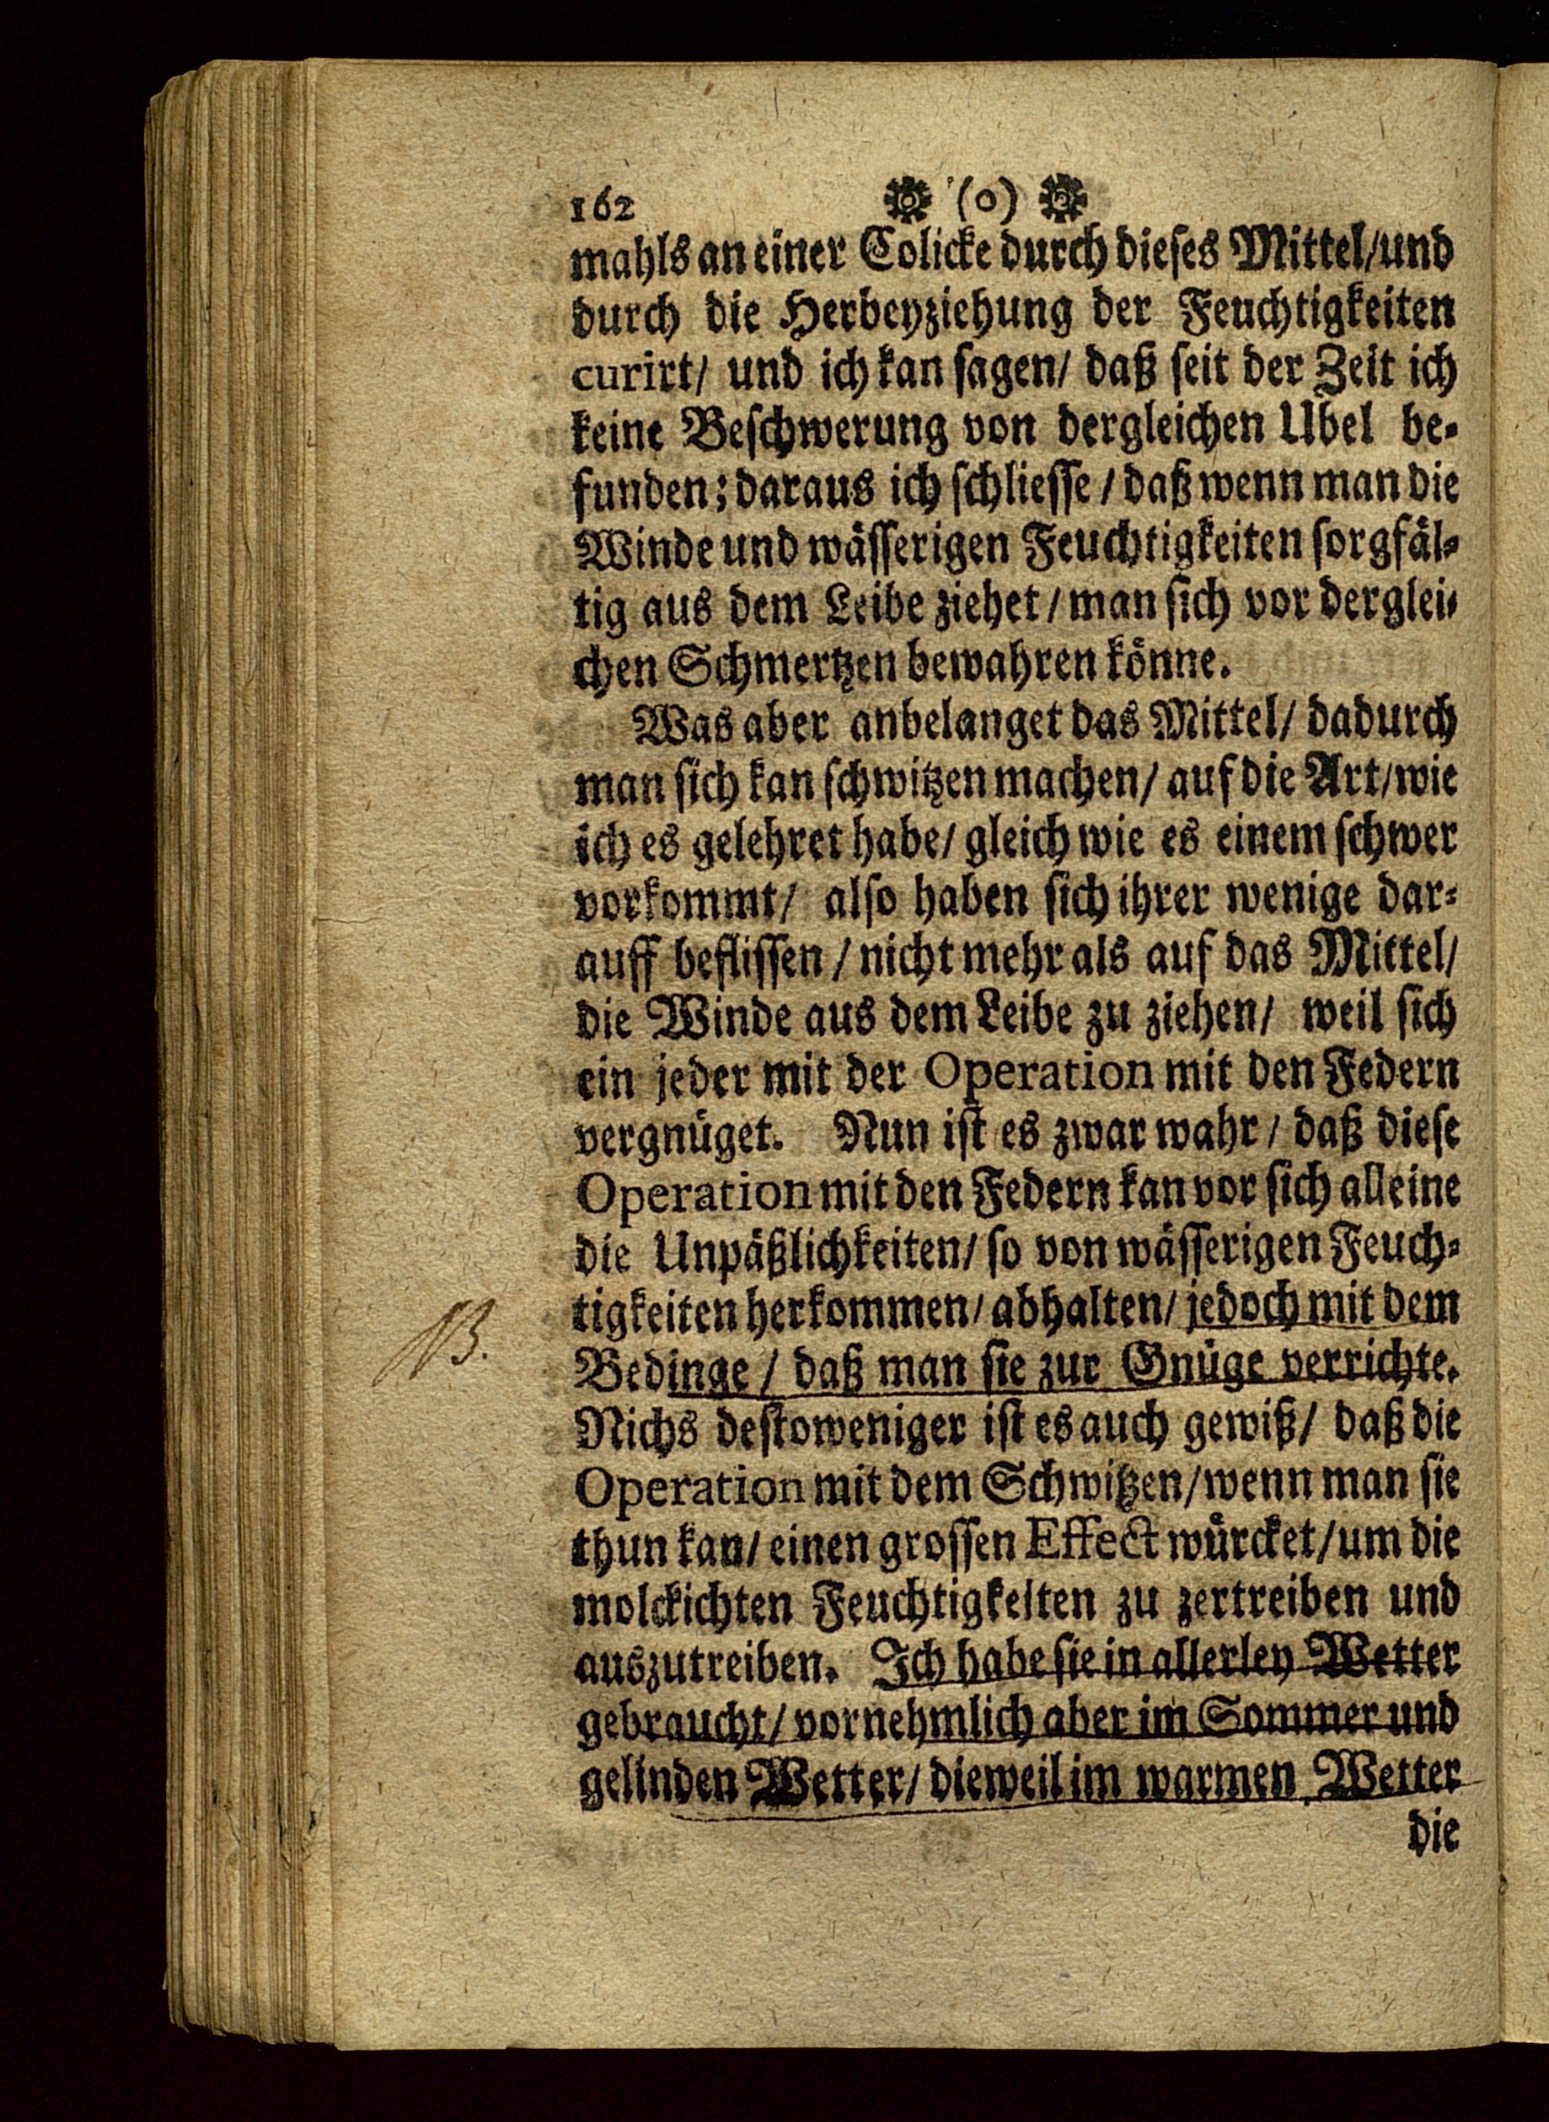 162 (o)
mahls an einer Colicke durch dieses Mittel/und
durch die Herbeyziehung der Feuchtigkeiten
curirt/ und ich kan sagen/ daß seit der Zeit ich
keine Beschwerung von dergleichen Ubel be-
funden; daraus ich schliesse / daß wenn man die
Winde und wässerigen Feuchtigkeiten sorgfäl-
tig aus dem Leibe ziehet / man sich vor derglei-
chen Schmertzen bewahren könne.
Was aber anbelanget das Mittel/ dadurch
man sich kan schwitzen machen/ auf die Art/wie
ich es gelehret habe/ gleich wie es einem schwer
vorkommt/ also haben sich ihrer wenige dar-
auff beflissen / nicht mehr als auf das Mittel/
die Winde aus dem Leibe zu ziehen/ weil sich
ein jeder mit der Operation mit den Federn
vergnüget. Nun ist es zwar wahr / daß diese
Operation mit den Federn kan vor sich alleine
die Unpäßlichkeiten/ so von wässerigen Feuch-
tigkeiten herkommen/ abhalten/ jedoch mit dem
NB.
Bedinge / daß man sie zur Gnüge verrichte.
Nichs destoweniger ist es auch gewiß/ daß die
Operation mit dem Schwitzen/wenn man sie
thun kan/ einen grossen Effect würcket/um die
molckichten Feuchtigkeiten zu zertreiben und
auszutreiben. Ich habe sie in allerley Wetter
gebraucht/ vornehmlich aber im Sommer und
gelinden Wetter/ dieweil im warmen Wetter
die